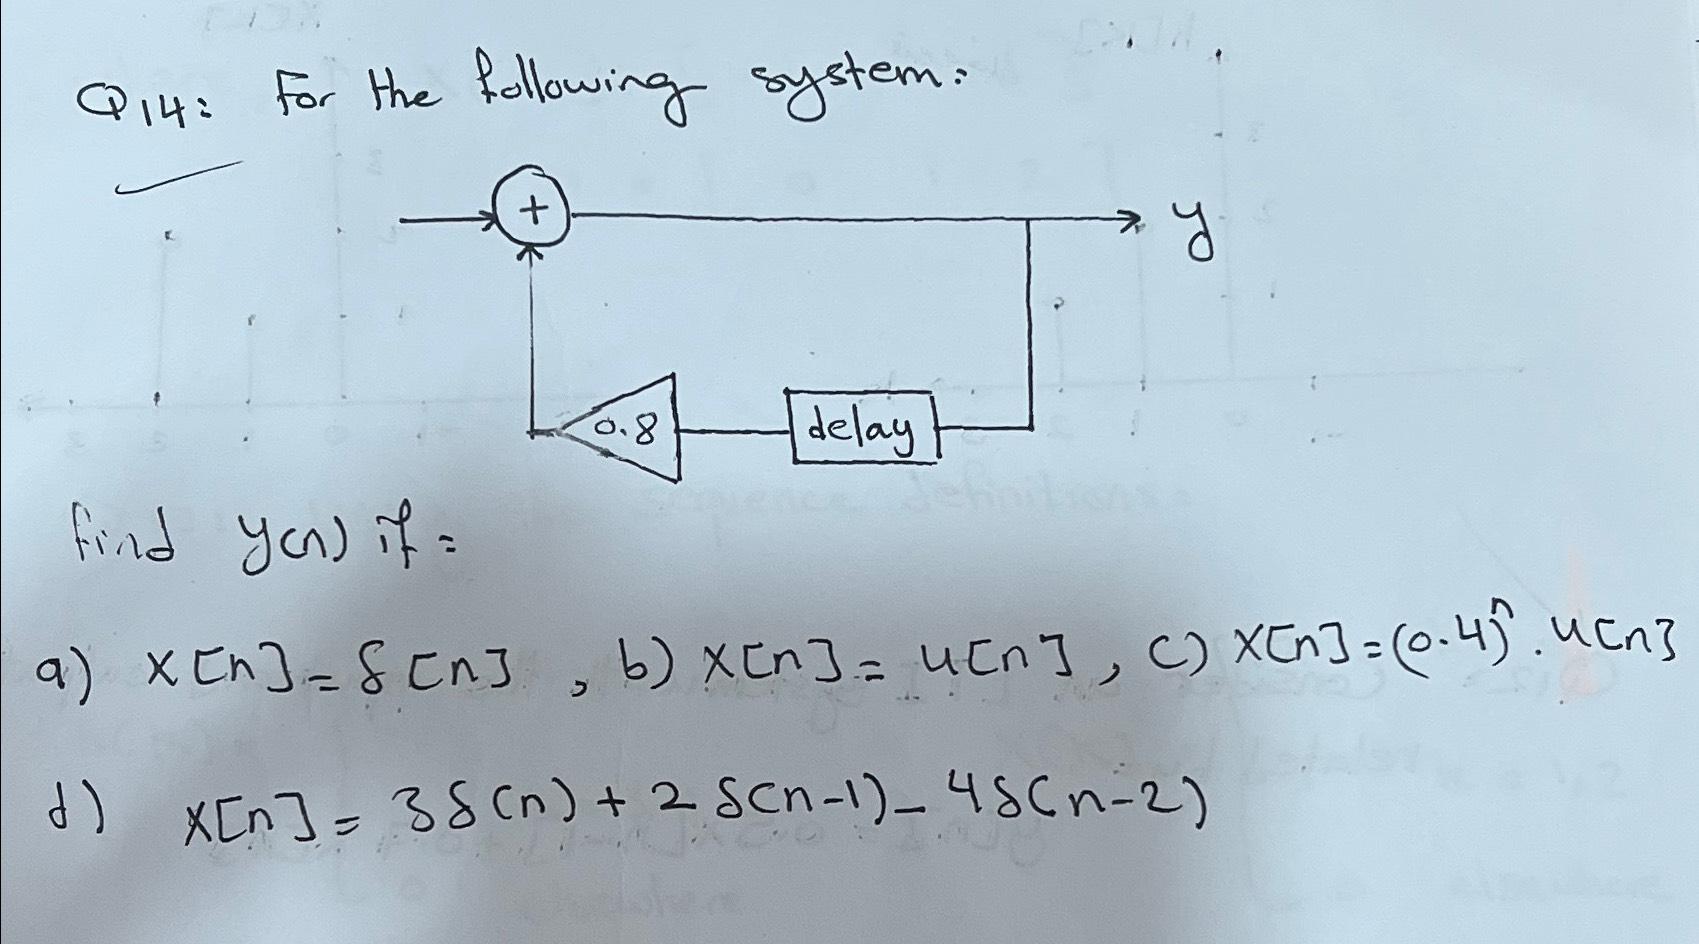 Q14: For the following system:
+
y
0.8
delay
find y(n) if:
a) x[n] = δ[n] , b) x[n] = u[n] , c) x[n] = (0.4)ⁿ . u[n]
d) x[n] = 3δ(n) + 2δ(n-1) - 4δ(n-2)